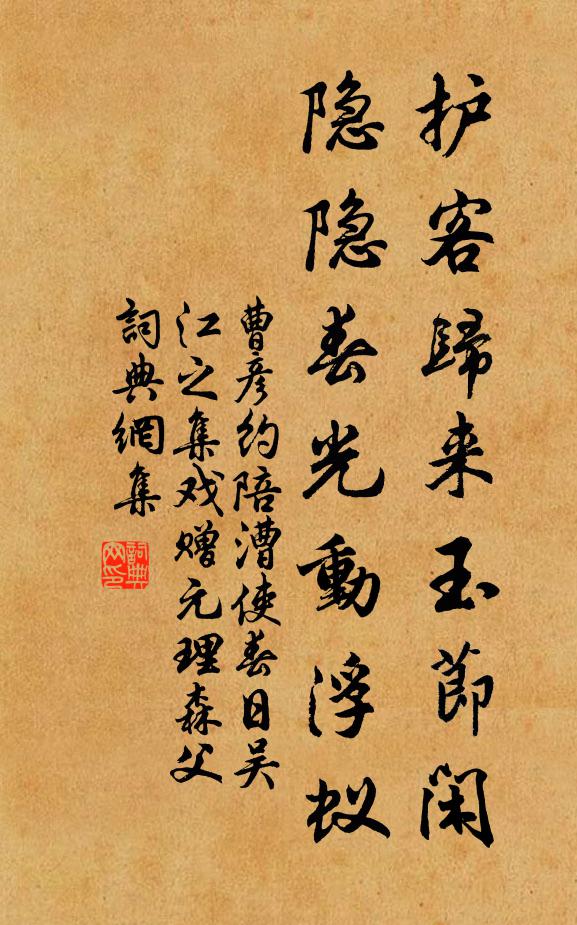 护客歸来玉節闲
隐隐春光動浮蚁
曹彦约陪漕使春日吴
江之集戏赠元理森父
詞典網集
詞典
网印